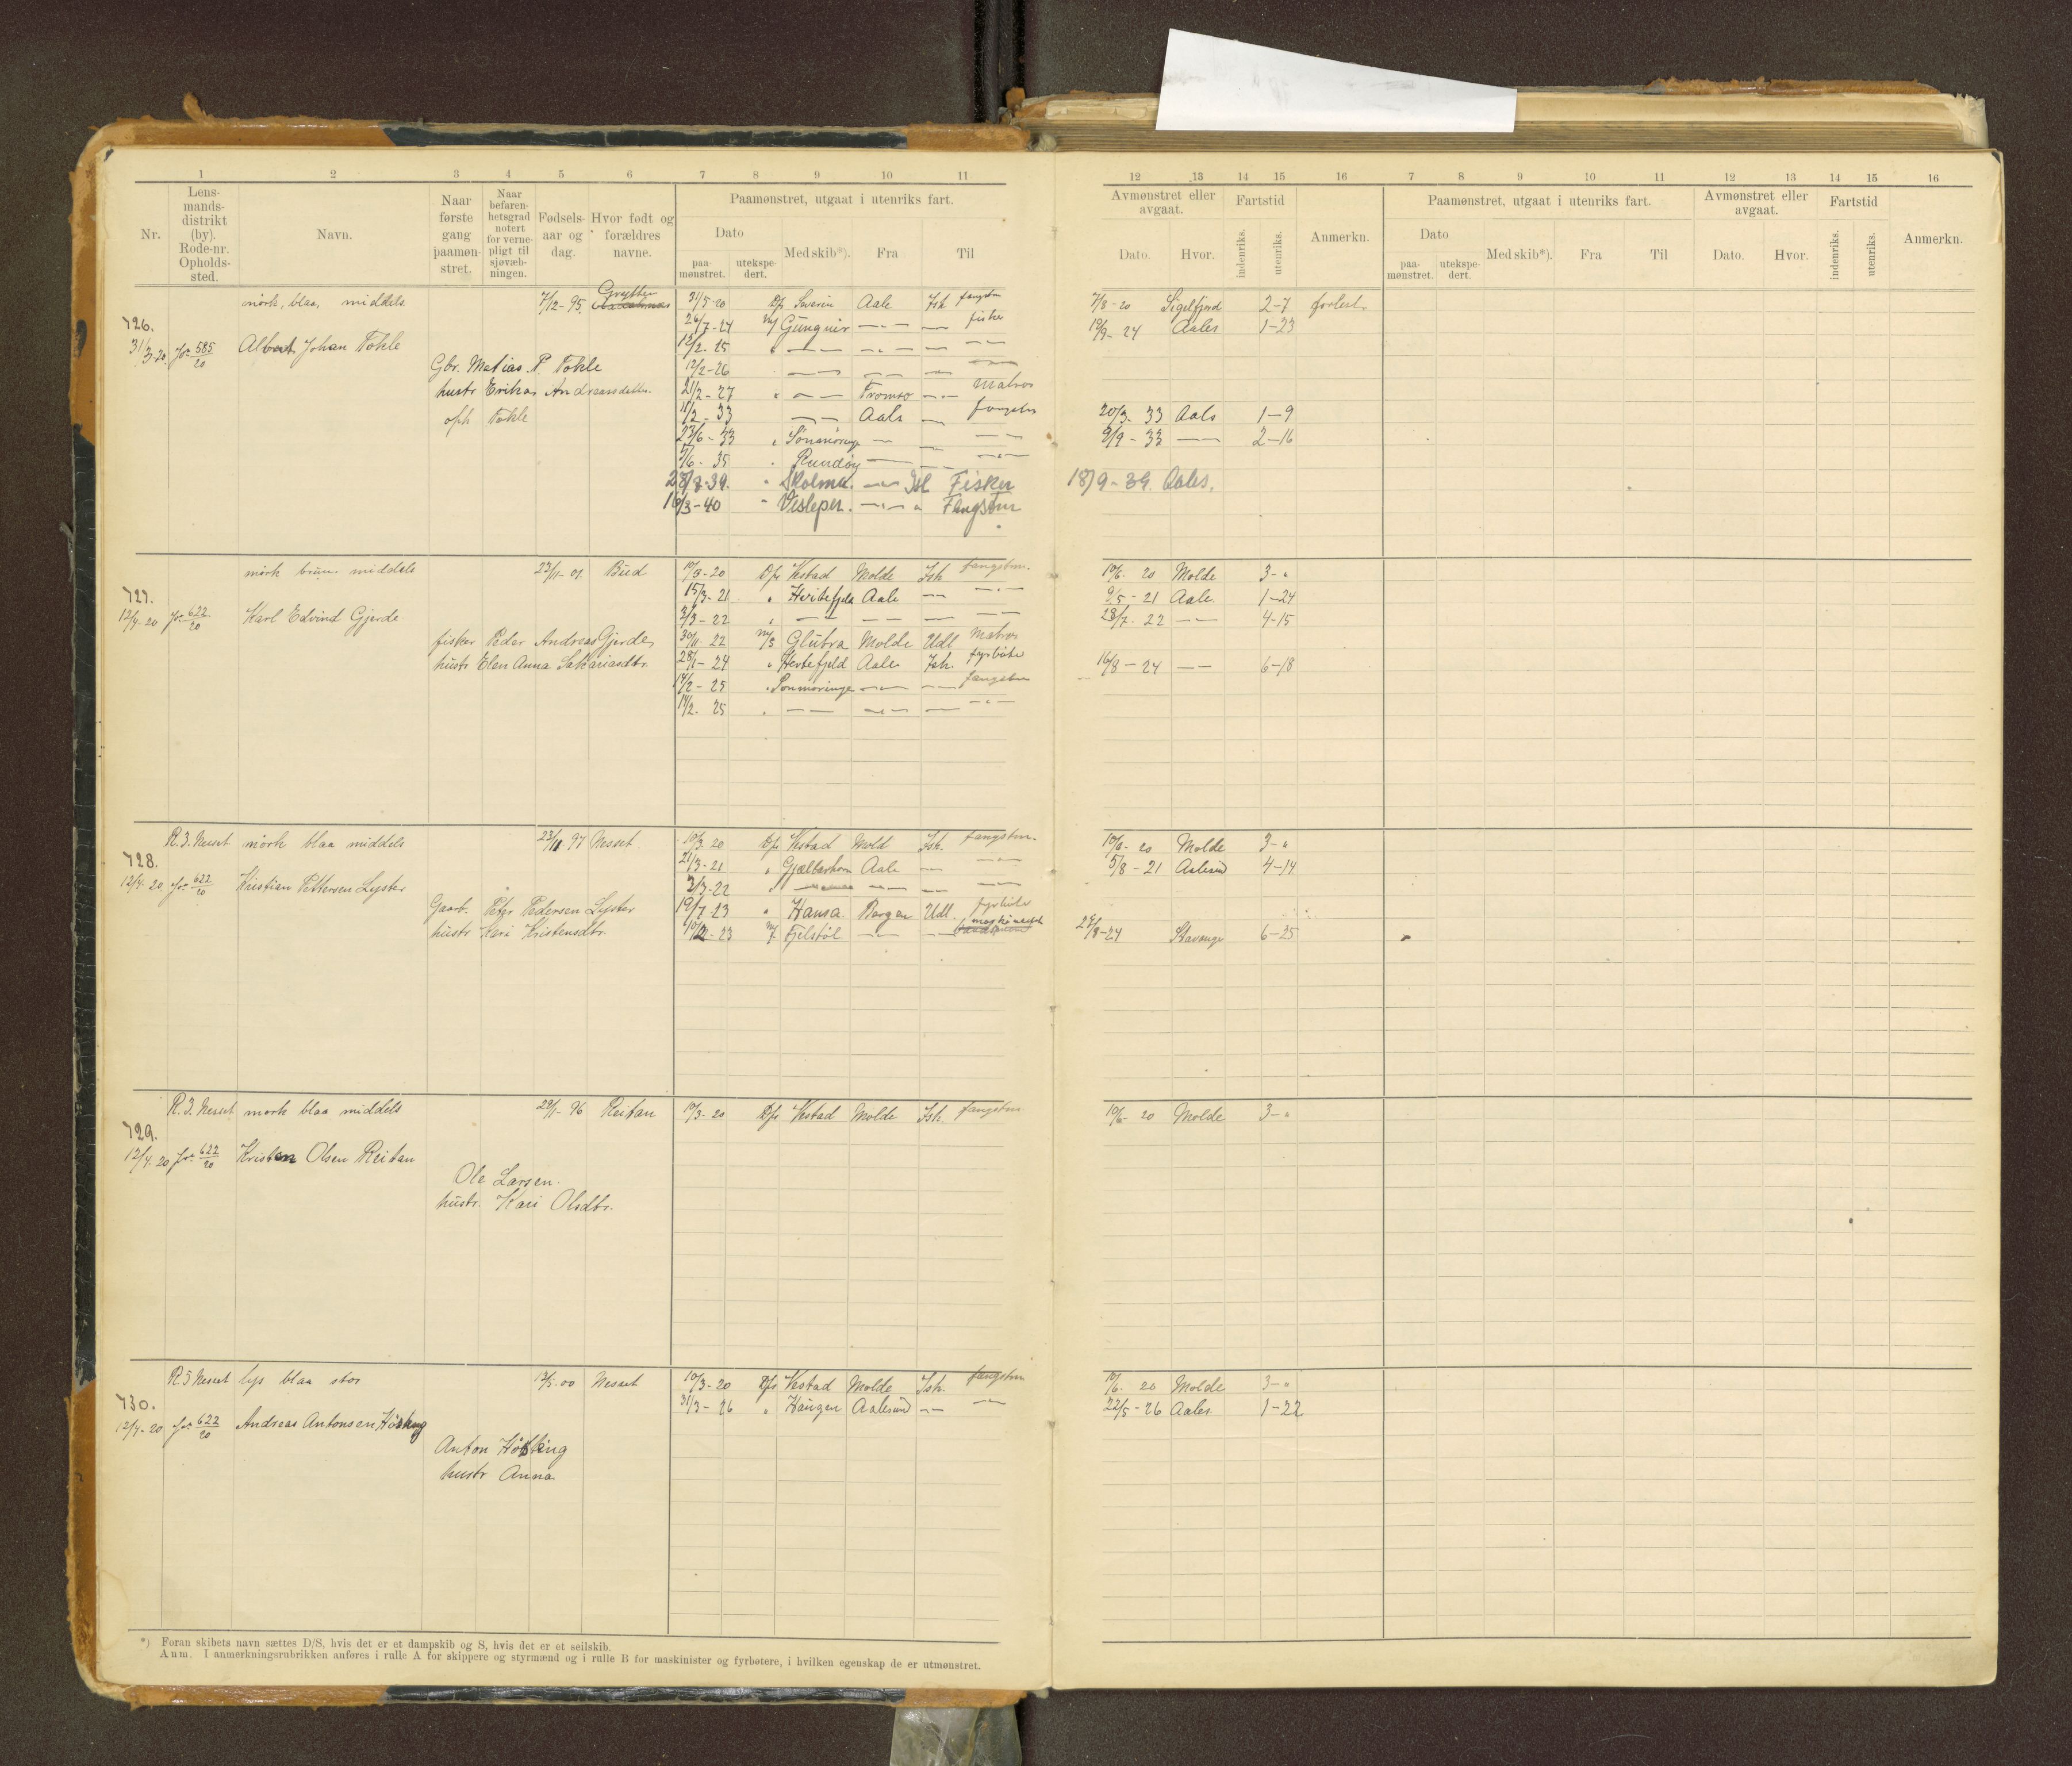 1 2 3 4 5 6 7 8 9 10 11
Nr.
Lens-
mands-
distrikt
(by).
Rode-nr.
Opholds-
sted.
Navn.
Naar
første
gang
paamøn-
stret.
Naar
befaren-
hetsgrad
notert
for verne-
pligt til
sjøvæb-
ningen.
Fødsels-
aar og
dag.
Hvor født og
forældres
navne.
Paamønstret, utgaat i utenriks fart.
Dato
paa-
mønstret.
utekspe-
dert.
Med skib*).
Fra
Til
mørk, blaa, middels 7/2-95. Grytten
726.
31/3-20. Jr. 585/20 Albert Johan Tokle
Gbr. Matias P. Tokle
hustr Erika Andreasdatter.
oph Tokle
31/5-20 D/s Severin Aale Ish fangstm
26/7-24 M/ Gungnir -"- — fisker
12/2-25 " -"- -"- — -"-
12/2-26 -"- -"- — -"-
21/2-27 " -"- Tromsø -"- Matros
11/2-33 -"- Aale — fangstm
23/6-33 " Sønmøringe — — -"-
5/6-35 " Rundøy — — -"-
28/8-39. " Skolma. -"- Isl Fisker
16/3-40 " Vesleper. -"- " Fangstm
mørk brun middels 23/11-01. Bud
727.
12/4-20 Jr. 622/20 Karl Edvind Gjerde
fisker Peder Andreas Gjerde,
hustr Elen Anna Sakariasdtr.
10/3-20 D/s Vestad Molde Ish fangstm.
15/3-21 " Hertefjeld Aale — -"-
3/3-22 " -"- — — -"-
30/11-22 M/s Glitra Molde Udl Matros
28/1-24 " Hertefjeld Aale Ish. fyrbøter
14/2-25 " Sønmøringe -"- — fangstm
14/2-25 " -"- -"- — -"-
R.3. Nesset mørk blaa middels 23/11 97 Nesset.
728.
12/4-20 Jr. 622/20 Kristian Pettersen Lyster
Gaarb. Peter Pedersen Lyster
hustr Kari Kristensdtr.
10/3 20 D/s Vestad Mold Ish. fangstm.
21/3-21 " Gjallarhorn Aale — -"-
2/3-22 " -"- -"- — -"-
19/7-23 " Hansa. Bergen Udl. fyrbøter
10/12-23 M/ Fjelstøl -"- —
R.3. Nesset mørk blaa middels 29/1-96 Reitan
729.
12/4-20 Jr. 622/20 Kristen Olsen Reitan
Ole Larsen.
hustr. Kari Olsdtr.
10/3-20 D/s Vestad Molde Ish. fangstm
R.5 Nesset lys blaa stor 13/5-00 Nesset
730.
12/4-20 Jr. 622/20 Andreas Antonsen
Anton
hustr Anna
10/3-20 D/s Vestad Molde Ish. fangstm
31/3-26 " Haugen Aalesund — -"-
*) Foran skibets navn sættes D/S, hvis det er et dampskib og S, hvis det er et seilskib.
Anm. I anmerkningsrubrikken anføres i rulle A for skippere og styrmænd og i rulle B for maskinister og fyrbøtere, i hvilken egenskap de er utmønstret.
12 13 14 15 16 7 8 9 10 11 12 13 14 15 16
Avmønstret eller
avgaat.
Dato. Hvor.
Fartstid
indenriks. utenriks.
Anmerkn.
Paamønstret, utgaat i utenriks fart.
Dato
paa-
mønstret.
utekspe-
dert.
Med skib*). Fra Til
Avmønstret eller
avgaat.
Dato. Hvor.
Fartstid
indenriks. utenriks.
Anmerkn.
7/8-20 Sigelfjord 2-7 forlist
19/9-24 Aales 1-23
20/3-33 Aals 1-9
9/9-33 — 2-16
18/9-39. Aales.
10/6-20 Molde 3-"
9/5-21 Aale. 1-24
28/7-22 -"- 4-15
16/8-24 -"- 6-18
10/6-20 Molde 3-"
5/8-21 Aalesund 4-14
Stavange 6-25
10/6-20 Molde 3-"
10/6-20 Molde 3-"
22/5-26 Aales. 1-22